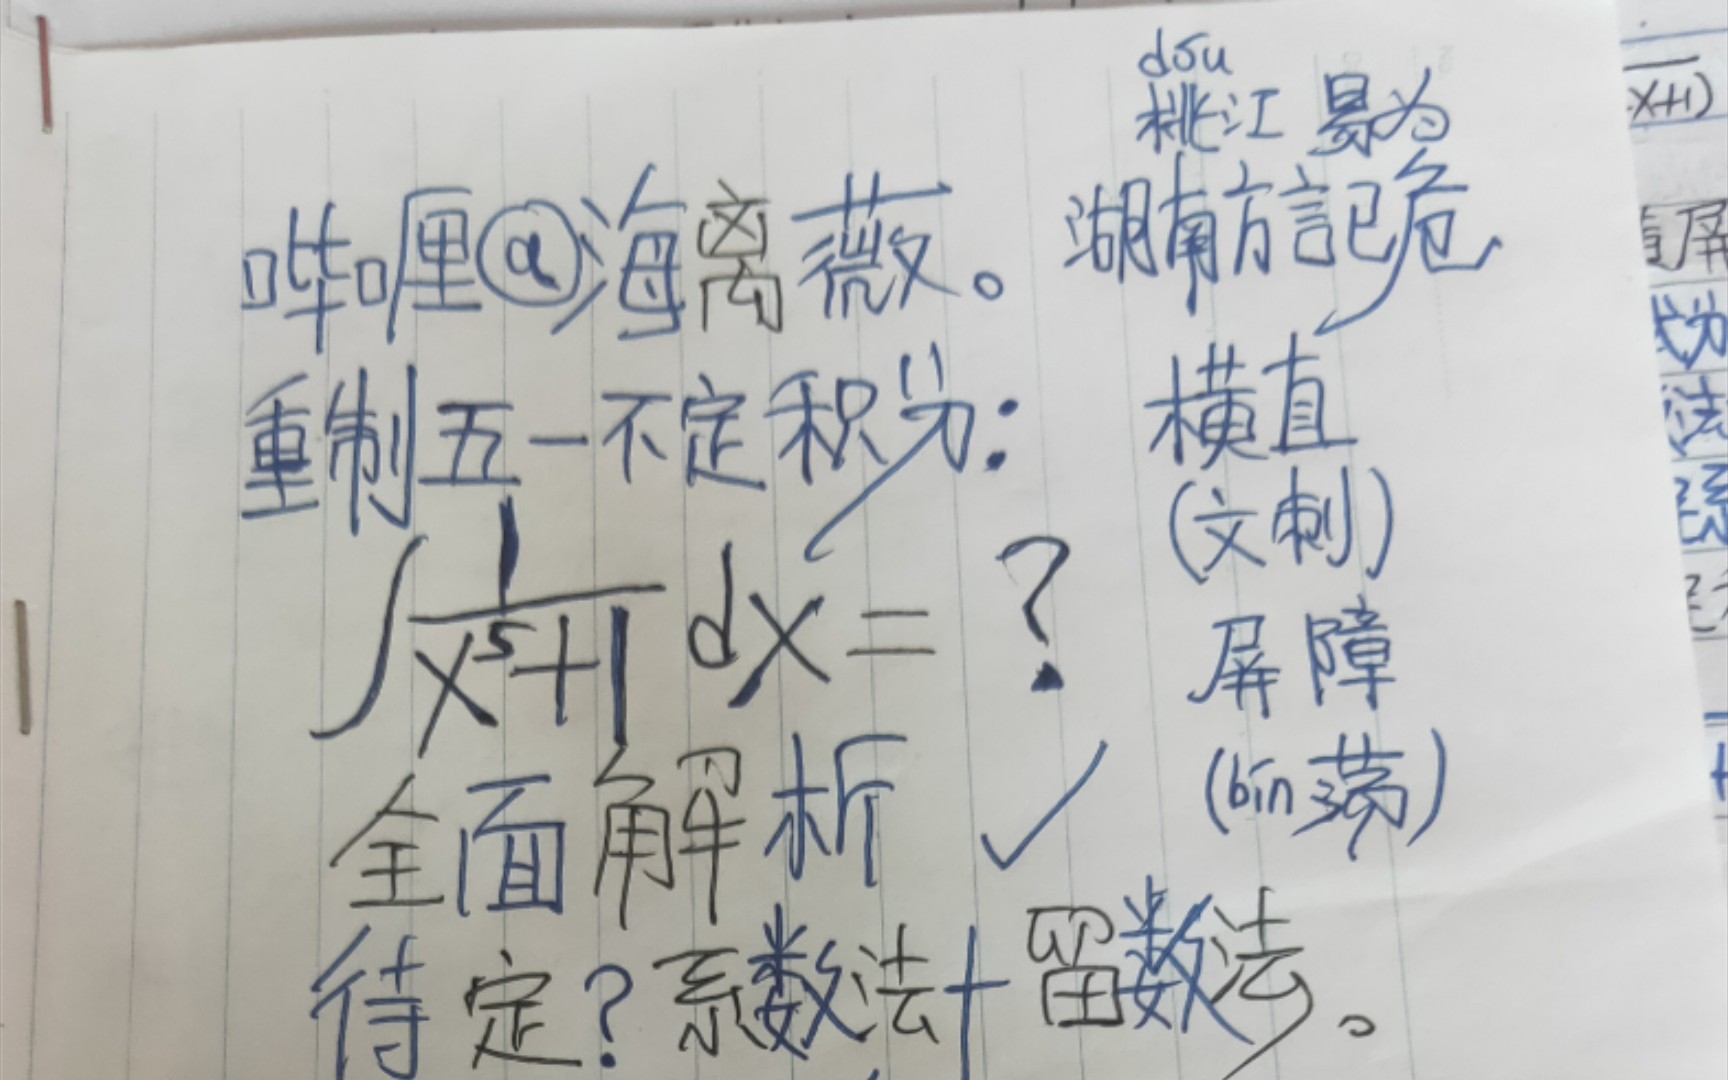 dōu
桃江 曷为
哔哩@海离薇。 湖南方言己危
重制五一不定积分: 横直
(文刺)
∫1/(x⁵+1) dx = ?
屏障
(bīn荡)
全面解析 ✓
待定?系数法+留数法。
x+1)
屏
法